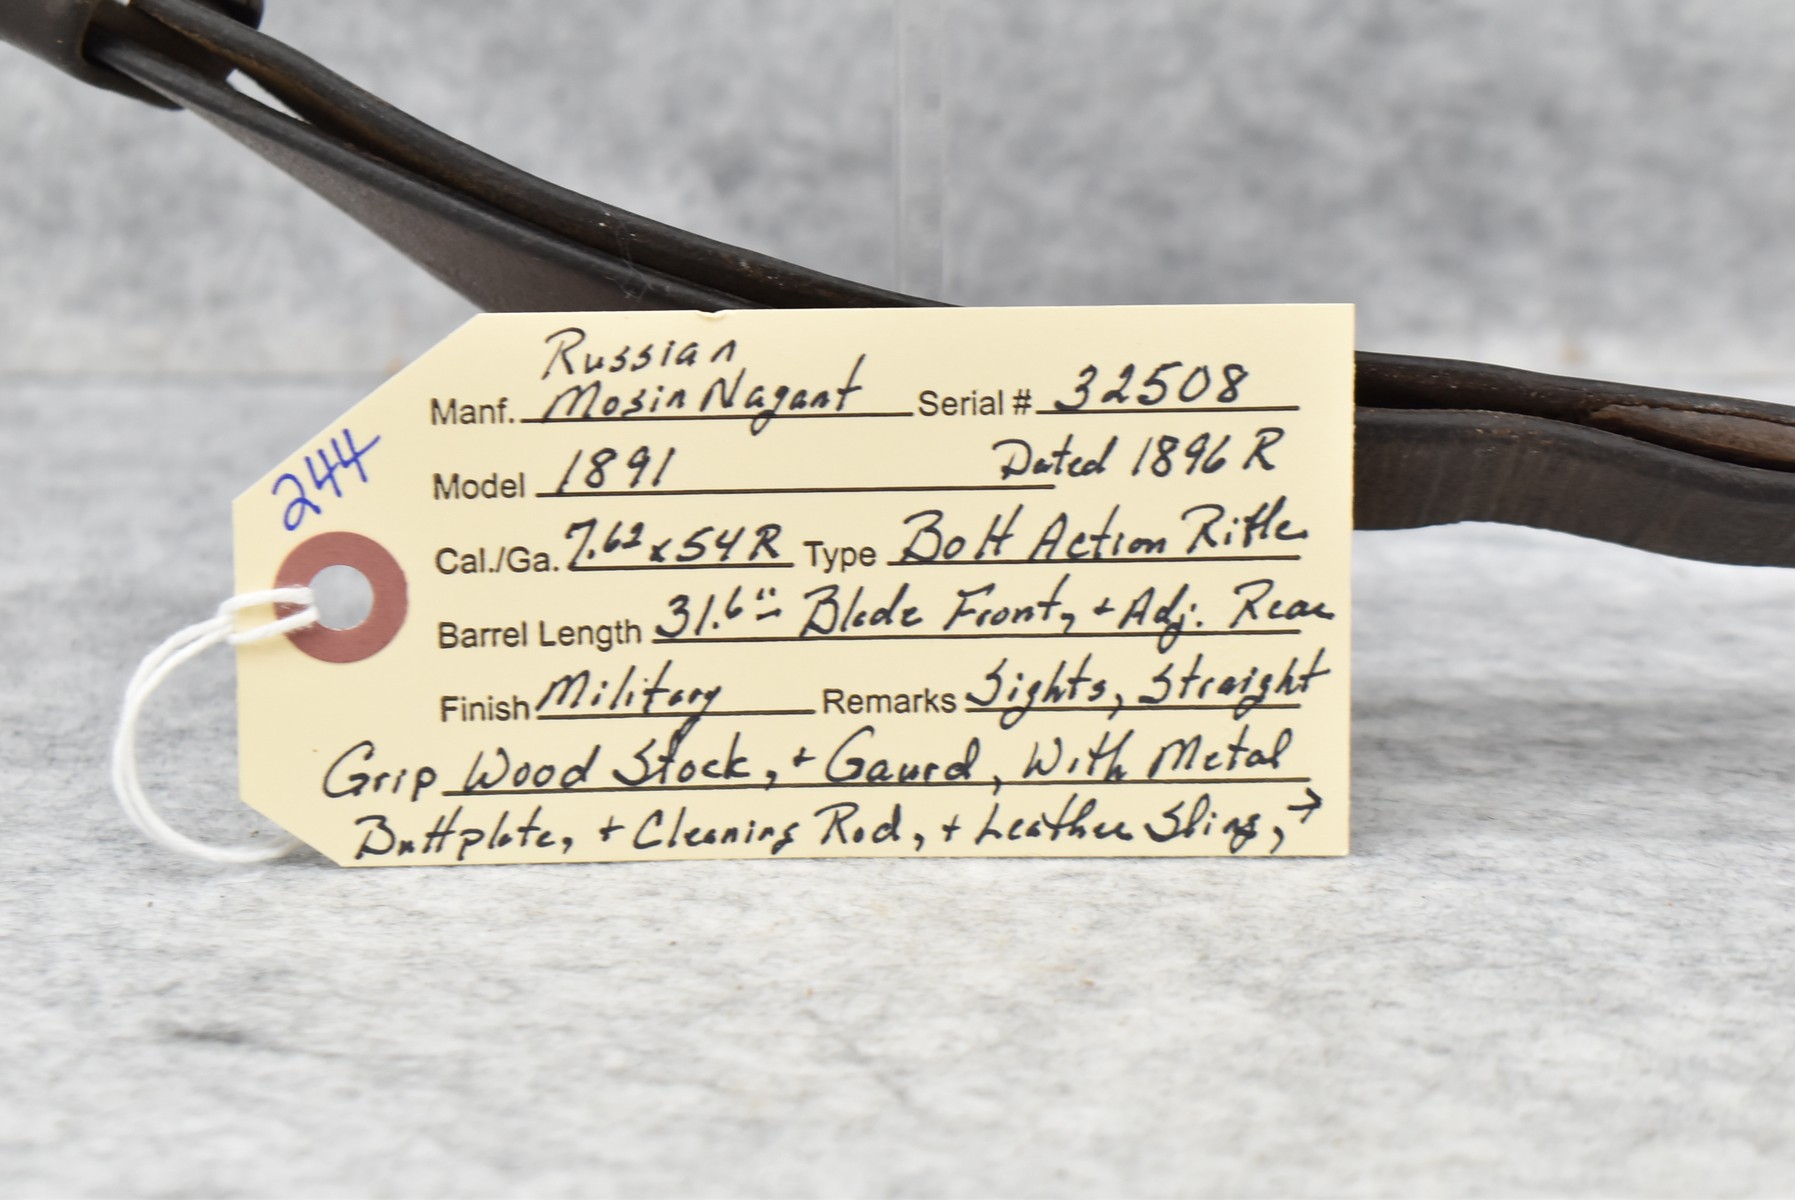 Russian
Manf. Mosin Nagant Serial # 32508
244
Model 1891 Dated 1896 R
Cal./Ga. 7.62 x 54 R Type Bolt Action Rifle
Barrel Length 31.6" - Blade Front, + Adj. Rear
Finish Military Remarks Sights, Straight
Grip Wood Stock, + Gaurd, With Metal
Buttplate, + Cleaning Rod, + Leather Sling, →